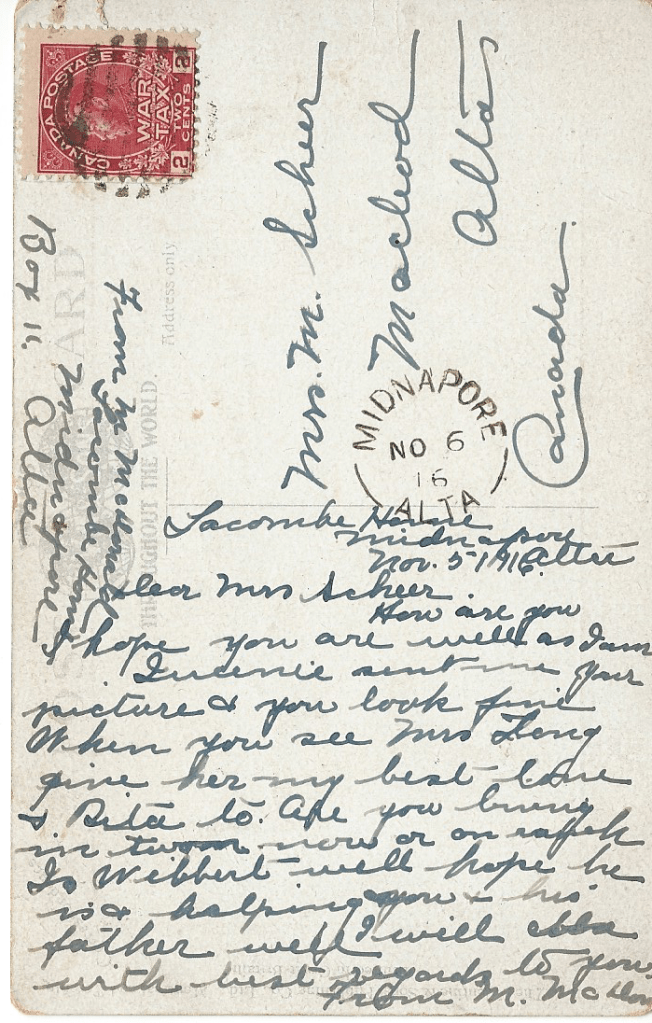 CANADA POSTAGE
WAR TAX
2 TWO CENTS 2
Mrs. M. Scheer
Macleod
Alta
Canada
MIDNAPORE
NO 6
16
ALTA
Address only
CARD
THROUGHOUT THE WORLD.
From M McDonald
Lacombe Home
Midnapore
Box 11, Alta
Lacombe Home
Midnapore
Nov. 5 1916 Alta
Dear Mrs Scheer.
How are you
I hope you are well as I am
sent me your
picture & you look fine
When you see Mrs
give her my best love
& Rita to. Are you living
in town now or on
Is Wibbert well hope he
is & helping you & his
father well I will
with best regards to you
From M. McDon